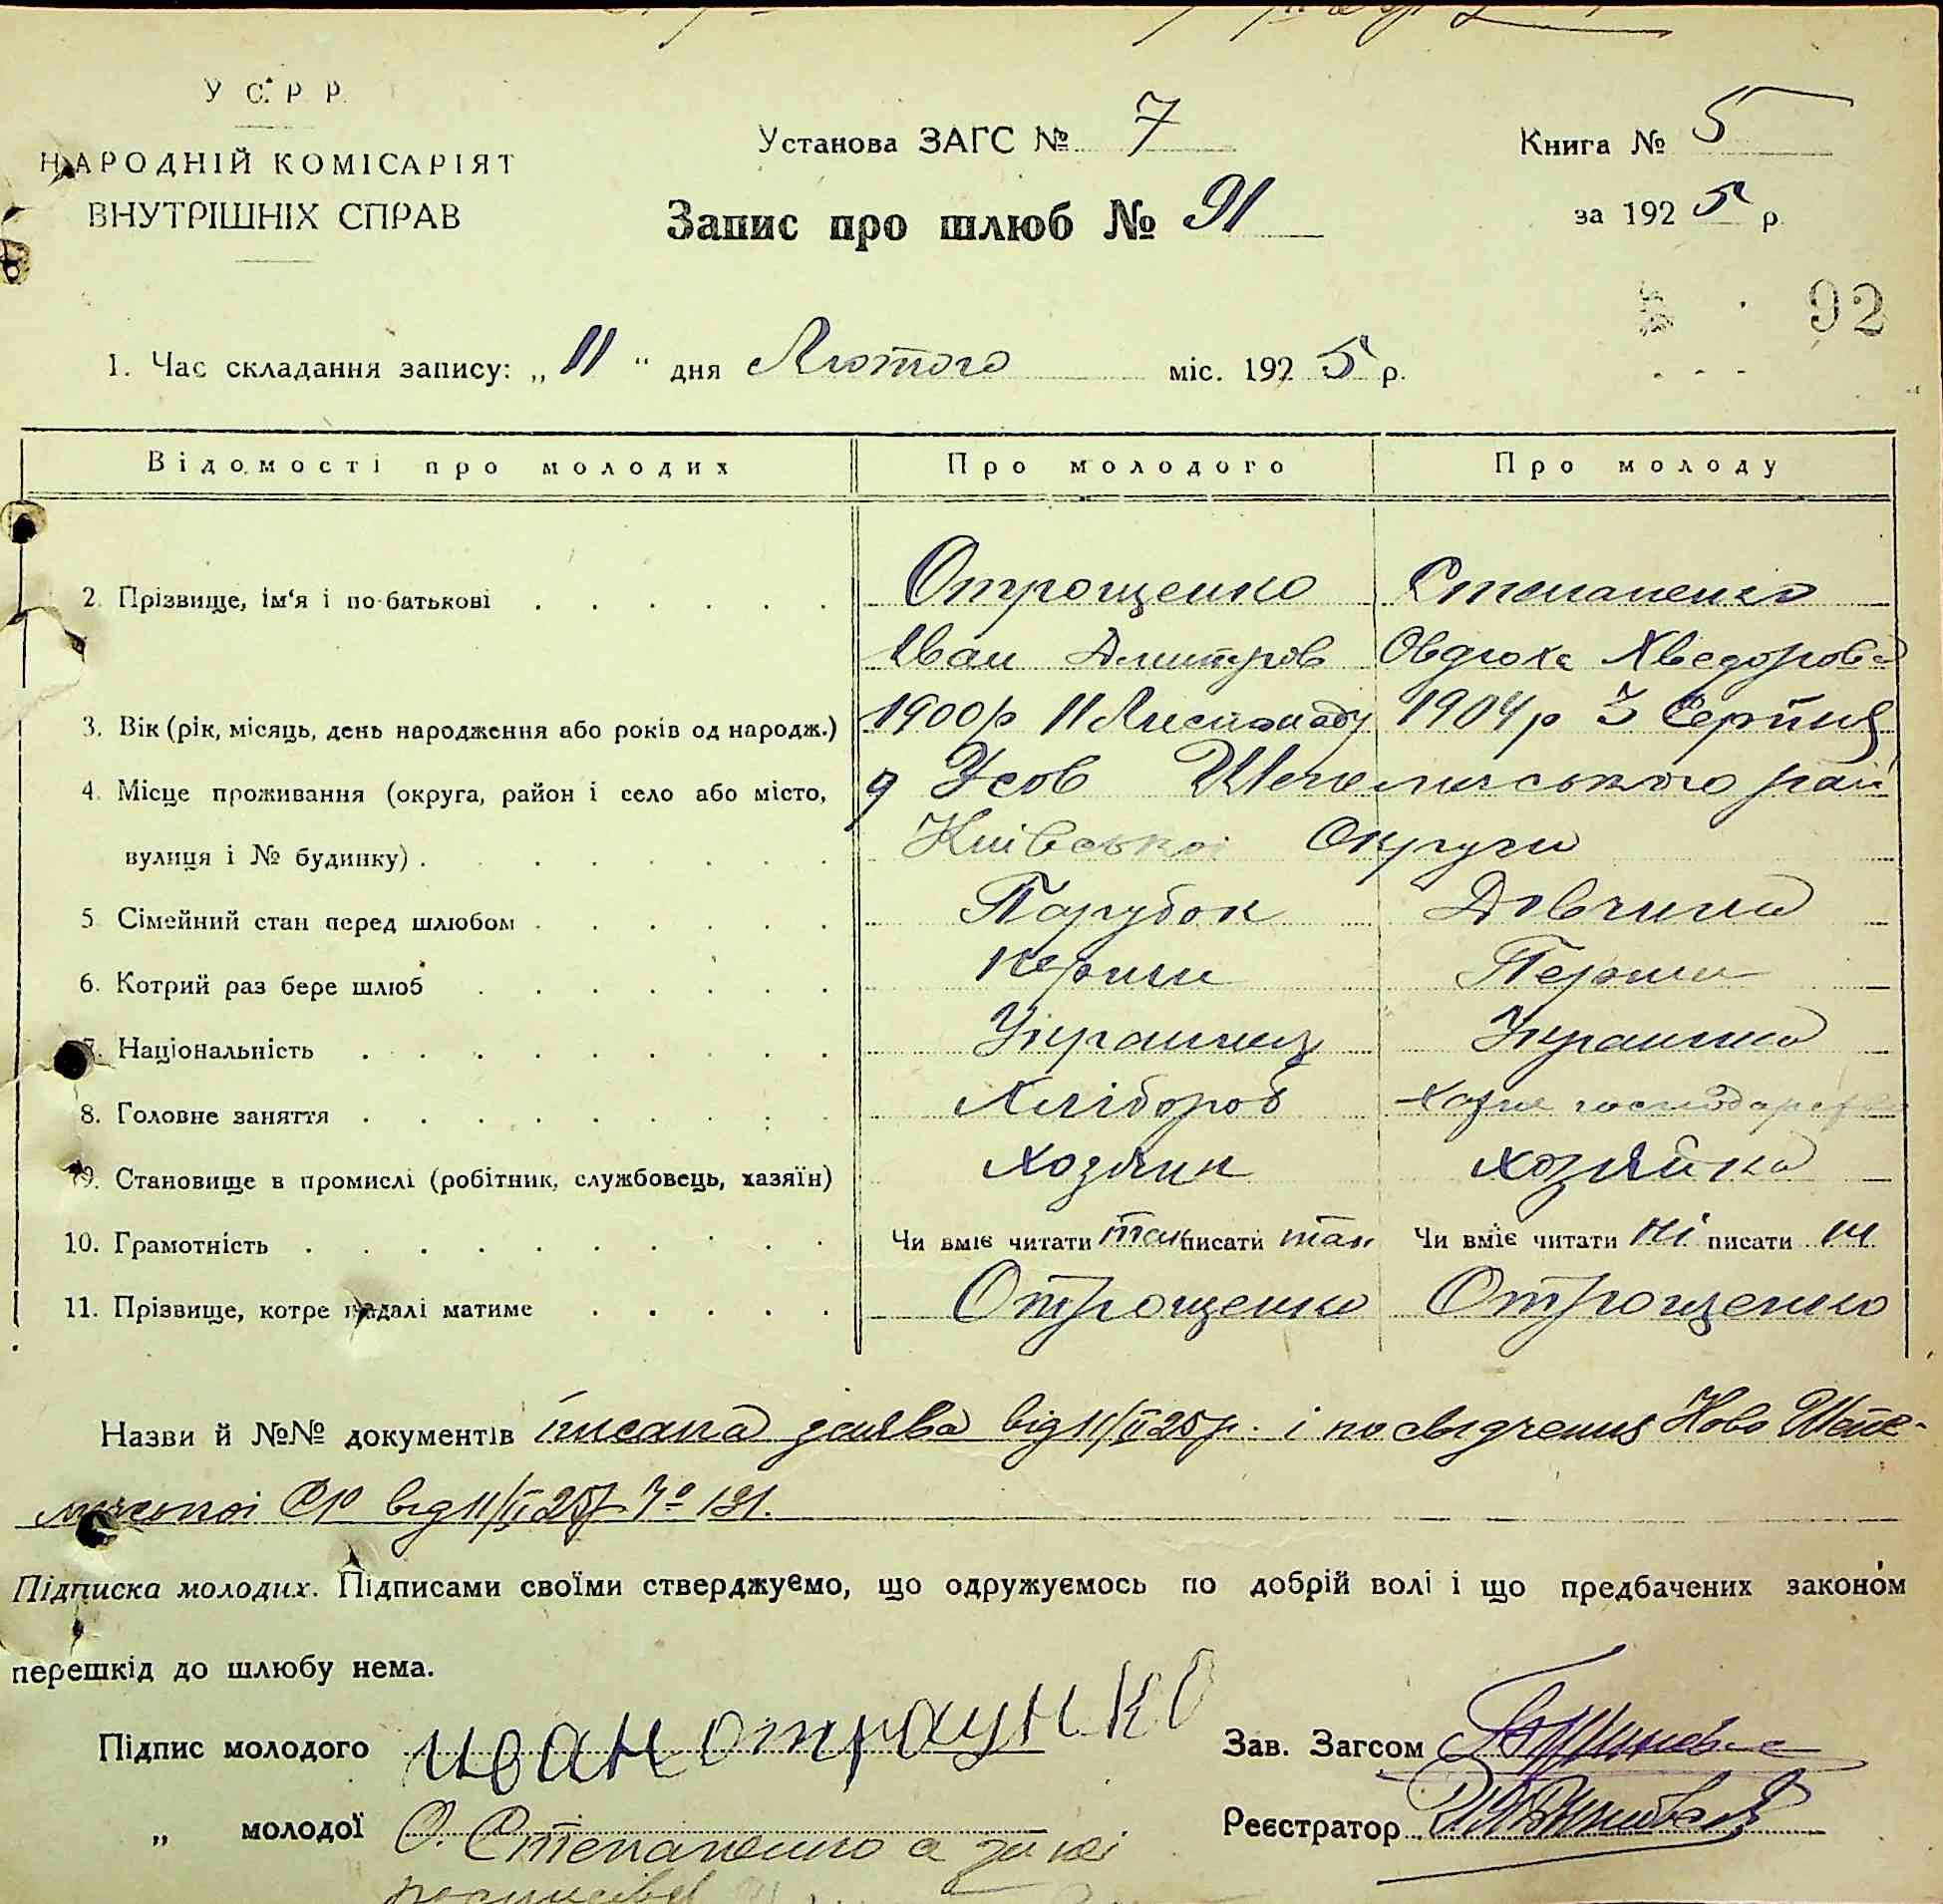 У С. Р Р.
НАРОДНІЙ КОМІСАРІЯТ
ВНУТРІШНІХ СПРАВ
Установа ЗАГС № 7
Запис про шлюб № 91
Книга № 5
за 1925 р.
92
1. Час складання запису: „11“ дня Лютого міс. 1925 р.
Відомості про молодих Про молодого Про молоду
2. Прізвище, ім'я і по-батькові Отрощенко Степаненко
Іван Дмитров Овдюха Хведорова
3. Вік (рік, місяць, день народження або років од народж.) 1900р 11 Листопаду 1904р 3 Серпня
4. Місце проживання (округа, район і село або місто, Усов Шепелицького рай
вулиця і № будинку) Київської Округи
5. Сімейний стан перед шлюбом Парубок Дівчина
6. Котрий раз бере шлюб перши Перши
7. Національність Українец Украинка
8. Головне заняття Хлібороб господарство
9. Становище в промислі (робітник, службовець, хазяїн) Хозяин хозяйка
10. Грамотність Чи вміє читати так писати так Чи вміє читати ні писати ні
11. Прізвище, котре надалі матиме Отрощенко Отрощенко
Назви й №№ документів писана заява від 11/II 25р. і посвідчення Ново Шепе-
лицької СР від 11/II 25р № 131.
Підписка молодих. Підписами своїми стверджуємо, що одружуємось по добрій волі і що предбачених законом
перешкід до шлюбу нема.
Підпис молодого иван отраунко Зав. Загсом
„ молодої О. Степаненко а за неі Реєстратор
росписівся